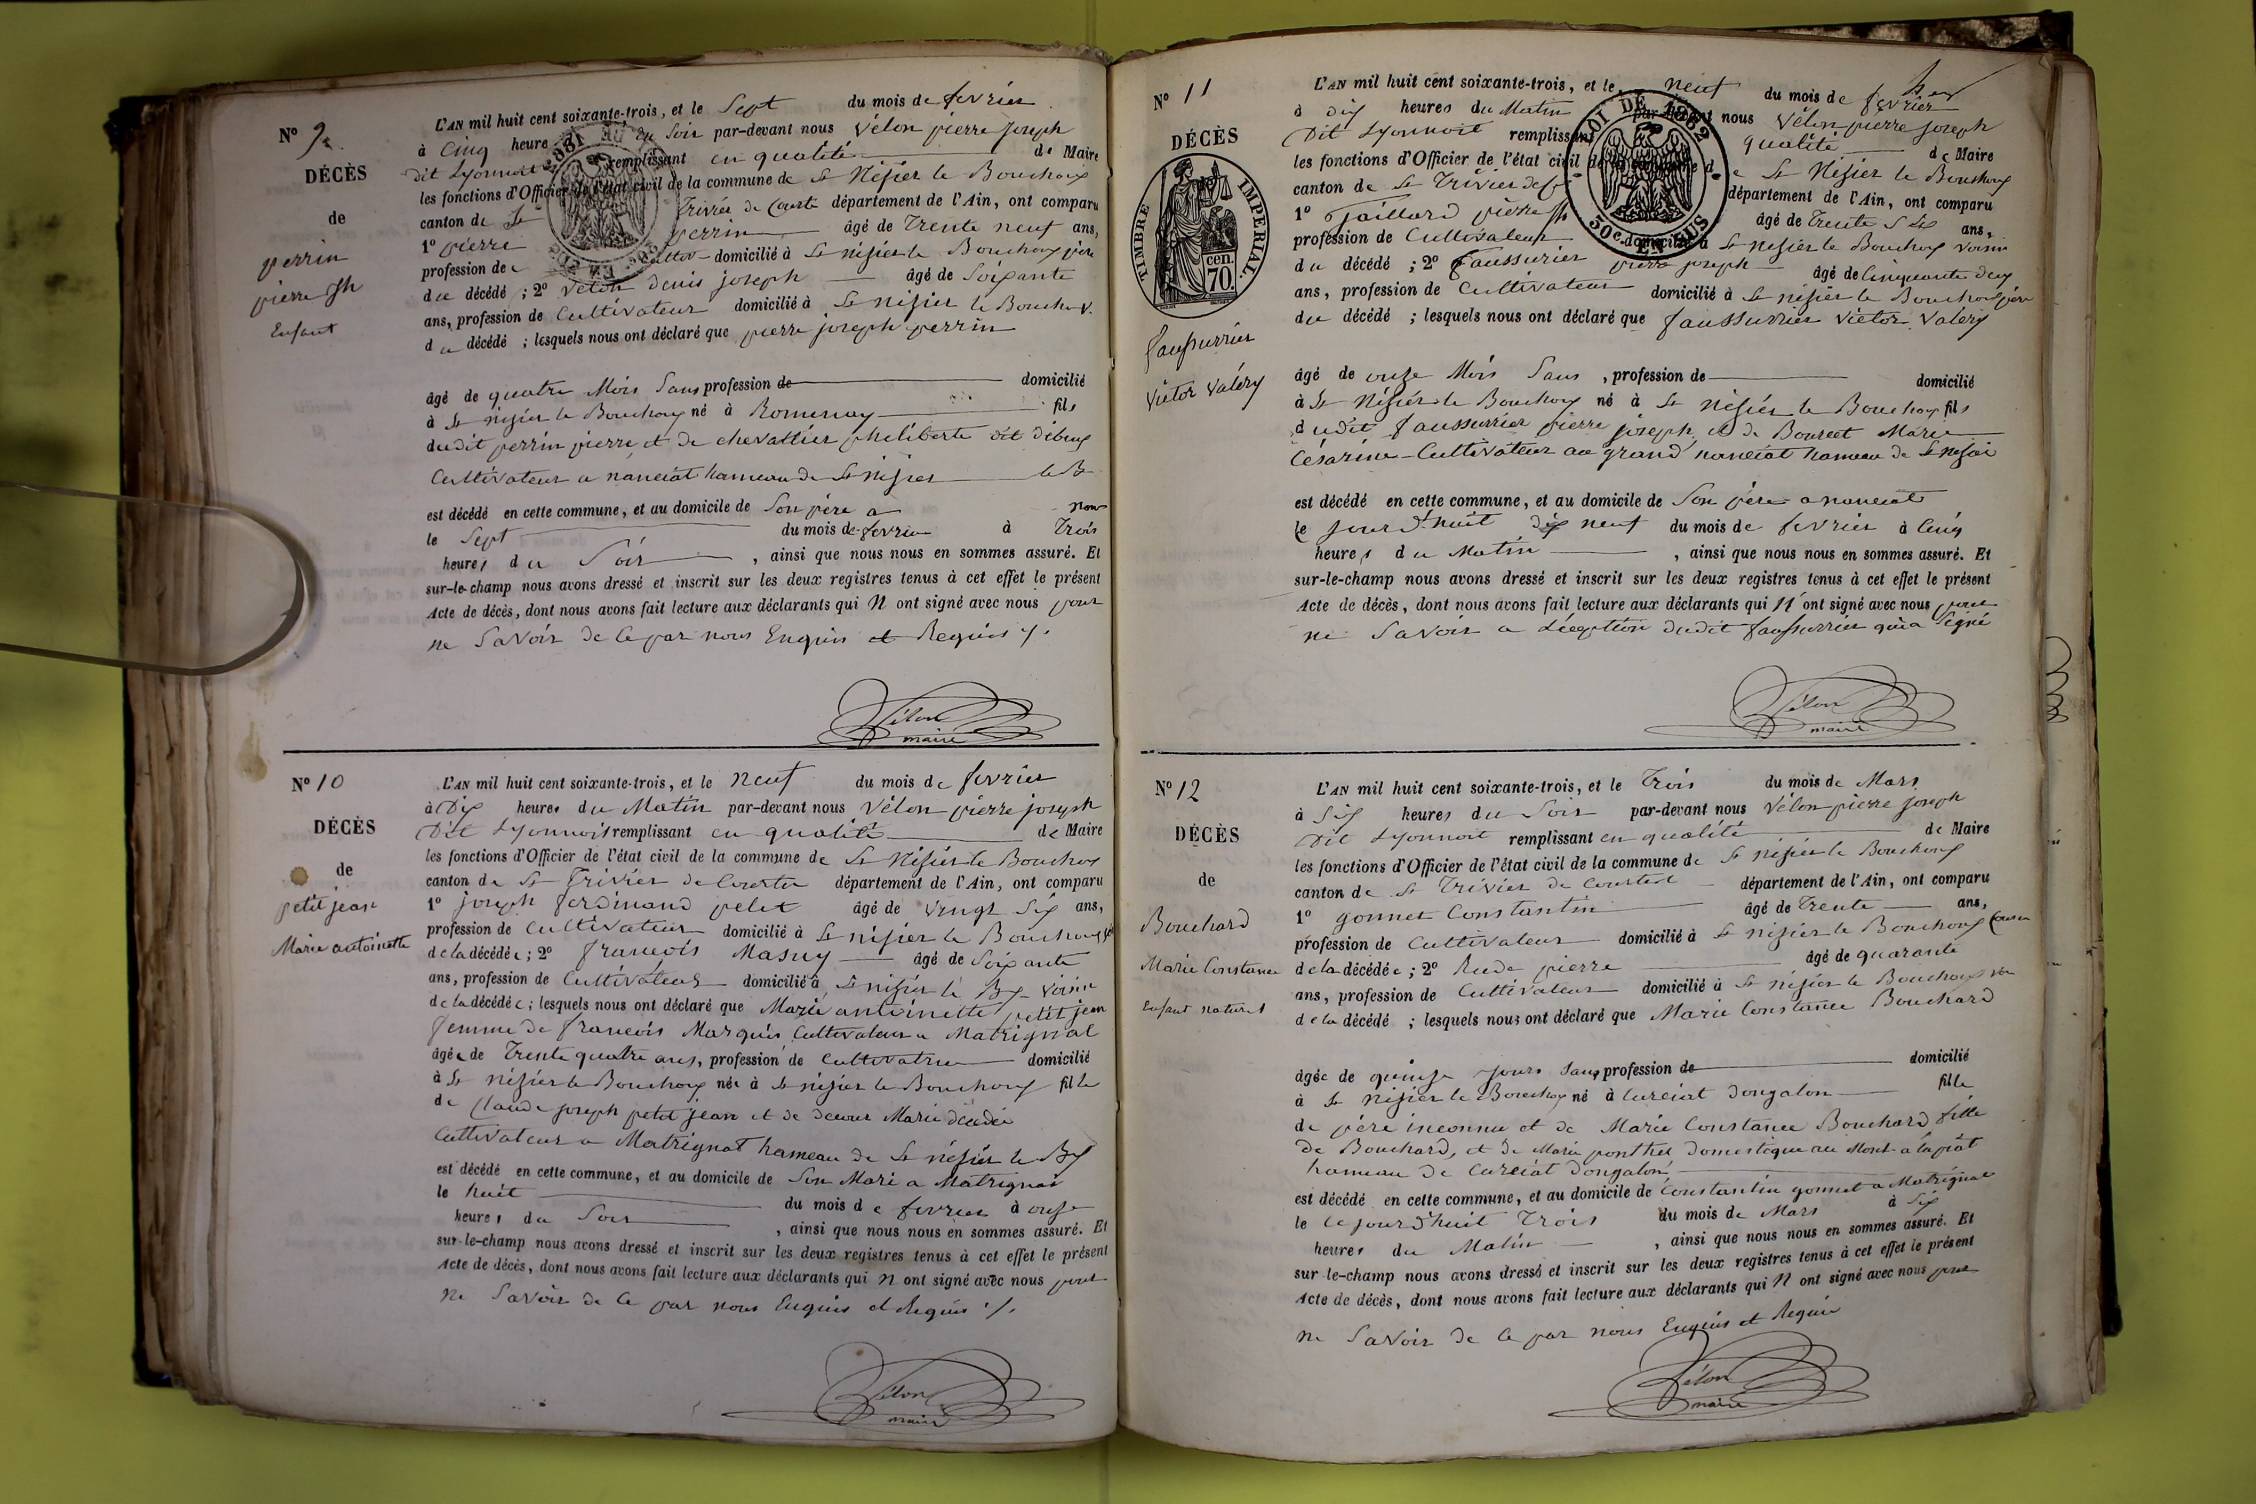 N° 9
DÉCÈS
de
perrin
pierre jh
Enfant
L'AN mil huit cent soixante-trois, et le Sept du mois de fevrier
à Cinq heure du Soir par-devant nous Vélon pierre Joseph
dit Lyonnois remplissant en qualité de Maire
les fonctions d'Officier de l'état civil de la commune de St Nisier le Bouchoux
canton de St Trivier de Courte département de l'Ain, ont comparu
1° pierre perrin âgé de Trente neuf ans,
profession de domicilié à St nisier le Bouchoux père
du décédé ; 2° Velon denis joseph âgé de Soixante
ans, profession de Cultivateur domicilié à St nisier le Bouchoux
du décédé ; lesquels nous ont déclaré que pierre joseph perrin
âgé de quatre Mois Sans profession de domicilié
à St nisier le Bouchoux né à Romenay fils
dudit perrin pierre et de chevallier pheliberte dit
Cultivateur a nanciat hameau de St nisier le B
est décédé en cette commune, et au domicile de Son père a
le Sept du mois de fevrier à Trois
heures du Soir , ainsi que nous nous en sommes assuré. Et
sur-le-champ nous avons dressé et inscrit sur les deux registres tenus à cet effet le présent
Acte de décès, dont nous avons fait lecture aux déclarants qui N ont signé avec nous pour
ne Savoir de Ce par nous Enquis et Requis
Vélon
maire
N° 10
DÉCÈS
de
petit jean
Marie antoinette
L'AN mil huit cent soixante-trois, et le Neuf du mois de fevrier
à Dix heures du Matin par-devant nous Vélon pierre joseph
Dit Lyonnois remplissant en qualité de Maire
les fonctions d'Officier de l'état civil de la commune de St Nisier le Bouchoux
canton de St Trivier de Courtes département de l'Ain, ont comparu
1° joseph ferdinand pelet âgé de Vingt Six ans,
profession de Cultivateur domicilié à St nisier le Bouchoux
de la décédée ; 2° francois Masuy âgé de Soixante
ans, profession de Cultivateur domicilié à St nisier le Bx Voisin
de la décédée ; lesquels nous ont déclaré que Marie antoinette petit jean
femme de francois Marquis Cultivateur a Matrignat
âgée de Trente quatre ans, profession de Cultivatrice domicilié
à St nisier le Bouchoux née à St nisier le Bouchoux fille
de Claude joseph petit jean et de Marie
Cultivateur a Matrignat hameau de St nisier le Bx
est décédé en cette commune, et au domicile de Son Mari a Matrignat
le huit du mois de fevrier à onze
heures du Soir , ainsi que nous nous en sommes assuré. Et
sur-le-champ nous avons dressé et inscrit sur les deux registres tenus à cet effet le présent
Acte de décès, dont nous avons fait lecture aux déclarants qui N ont signé avec nous pour
ne Savoir de Ce par nous Enquis et Requis
Vélon
maire
N° 11
DÉCÈS
TIMBRE IMPÉRIAL.
cen.
70.
faussurrier
Victor Valéry
L'AN mil huit cent soixante-trois, et le neuf du mois de fevrier
LOI DE 1862
30c. EN SUS
à dix heures du Matin par-devant nous Vélon pierre joseph
Dit Lyonnoit remplissant qualité de Maire
les fonctions d'Officier de l'état civil de la commune de St Nisier le Bouchoux
canton de St Trivier de département de l'Ain, ont comparu
1° Jaillard pierre jh âgé de Trente Six ans,
profession de Cultivateur domicilié à St nisier le Bouchoux Voisin
du décédé ; 2° faussurier pierre joseph âgé de Cinquante deux
ans, profession de Cultivateur domicilié à St nisier le Bouchoux père
du décédé ; lesquels nous ont déclaré que faussurrier Victor Valéry
âgé de onze Mois Sans , profession de domicilié
à St Nisier le Bouchoux né à St Nisier le Bouchoux fils
dudit faussurrier pierre joseph et de Bourcet Marie
Césarine Cultivateur au grand nanciat hameau de St nisier
est décédé en cette commune, et au domicile de Son père a nanciat
le jour d'huit neuf du mois de fevrier à Cinq
heures du Matin , ainsi que nous nous en sommes assuré. Et
sur-le-champ nous avons dressé et inscrit sur les deux registres tenus à cet effet le présent
Acte de décès, dont nous avons fait lecture aux déclarants qui N ont signé avec nous pour
ne Savoir a Léxeption dudit faussurrier qui a Signé
Vélon
maire
N° 12
DÉCÈS
de
Bouchard
Marie Constance
Enfant naturel
L'AN mil huit cent soixante-trois, et le Trois du mois de Mars
à Six heures du Soir par-devant nous Vélon pierre joseph
Dit Lyonnoit remplissant en qualité de Maire
les fonctions d'Officier de l'état civil de la commune de St nisier le Bouchoux
canton de St Trivier de Courtes département de l'Ain, ont comparu
1° gonnet Constantin âgé de Trente ans,
profession de Cultivateur domicilié à St nisier le Bouchoux Cousin
de la décédée ; 2° Rude pierre âgé de quarante
ans, profession de Cultivateur domicilié à St nisier le Bouchoux
de la décédé ; lesquels nous ont déclaré que Marie Constance Bouchard
âgée de quinze jours Sans profession de domicilié
à St Nisier le Bouchoux né à Curciat dongalon fille
de père inconnu et de Marie Constance Bouchard fille
de Bouchard, et de Marie ponthet domestique au Mont
hameau de Curciat dongalon
est décédé en cette commune, et au domicile de Constantin gonnet a Matrignat
le Ce jour d'huit Trois du mois de Mars à Six
heures du Matin , ainsi que nous nous en sommes assuré. Et
sur-le-champ nous avons dressé et inscrit sur les deux registres tenus à cet effet le présent
Acte de décès, dont nous avons fait lecture aux déclarants qui N ont signé avec nous pour
ne Savoir de Ce par nous Enquis et Requis
Vélon
maire